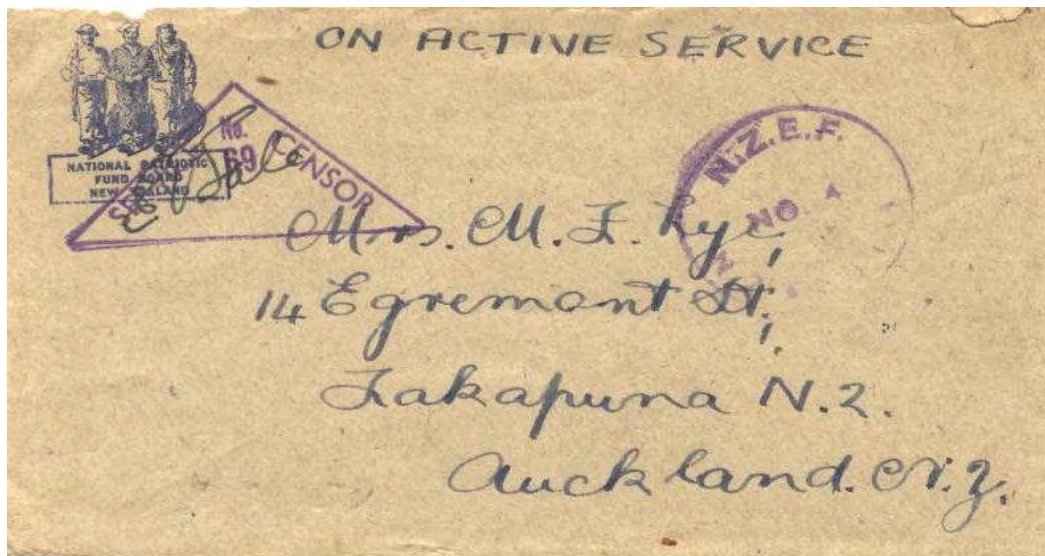 ON ACTIVE SERVICE
NATIONAL PATRIOTIC
FUND BOARD
NEW ZEALAND
No.
69
CENSOR
N.Z.E.F.
NO 4
Mrs. M. F. Nye,
14 Egremont St,
Takapuna N.2.
Auckland. N.Z.